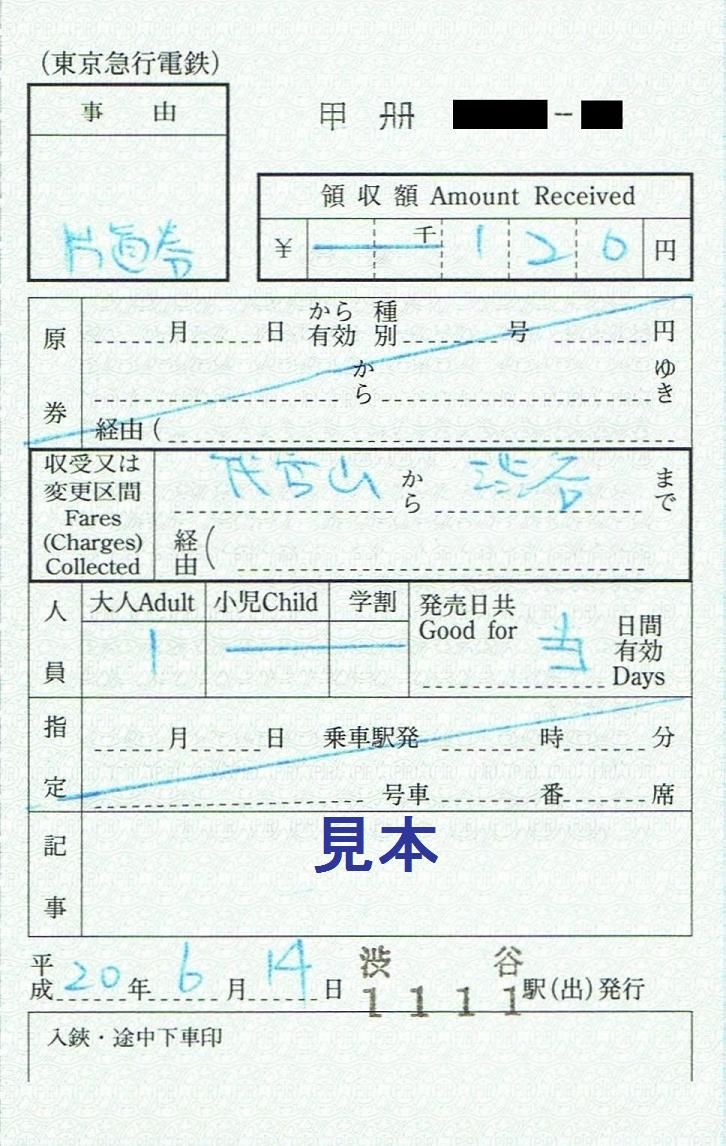 （東京急行電鉄）
事由
片道券
甲 册 -
領収額 Amount Received
￥ 千 1 2 0 円
原券
月 日 から有効 種別 号 円
から ゆき
経由（
収受又は変更区間 Fares (Charges) Collected
代官山 から 渋谷 まで
経由（
人員
大人Adult 小児Child 学割
1
発売日共 Good for 当 日間有効 Days
指定
月 日 乗車駅発 時 分
号車 番 席
記事
見本
平成 20 年 6 月 14 日 渋谷 1111 駅（出）発行
入鋏・途中下車印